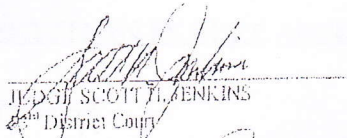 JUDGE SCOTT H. JENKINS
53rd District Court